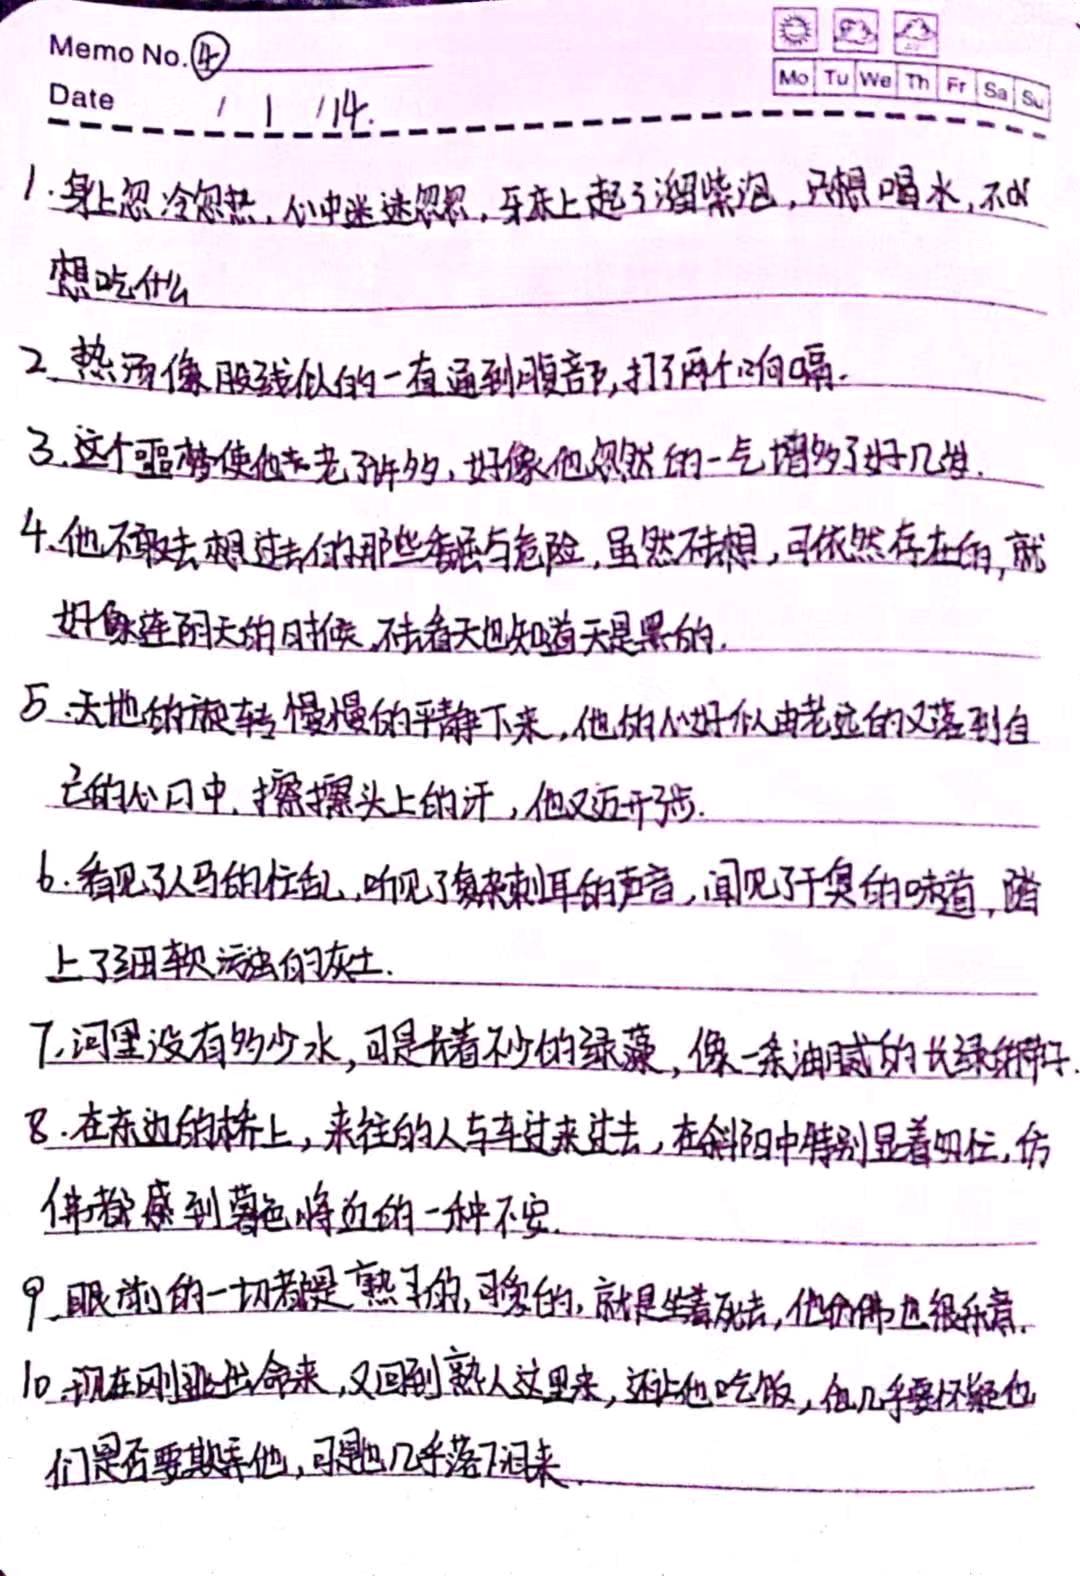 Memo No. ④
Mo Tu We Th Fr Sa Su
Date / 1 /14.
1.身上忽冷忽热,心中迷迷忽忽,牙床上起了溜紫泡,只想喝水,不
想吃什么
2.热汤像股线似的一直通到腹部,打了两个响嗝.
3.这个噩梦使他老了许多,好像他忽然的一气增多了好几岁.
4.他不敢去想过去的那些委屈与危险,虽然不去想,可依然存在的,就
好像连阴天的时候,不去看天也知道天是黑的.
5.天地的旋转慢慢的平静下来,他的心好似由老远的又落到自
己的心口中,擦擦头上的汗,他又迈开了步.
6.看见了人马的忙乱,听见了复杂刺耳的声音,闻见了干臭的味道,踏
上了细软污浊的灰土.
7.河里没有多少水,可是长着不少的绿藻,像一条油腻的长绿的带子.
8.在东边的桥上,来往的人与车过来过去,在斜阳中特别显着匆忙,仿
佛都感到暮色将近的一种不安.
9.眼前的一切都是熟习的,可爱的,就是坐着死去,他仿佛也很乐意.
10.现在刚逃出命来,又回到熟人这里来,还让他吃饭,他几乎要怀疑他
们是否要欺弄他,可是也几乎落下泪来.